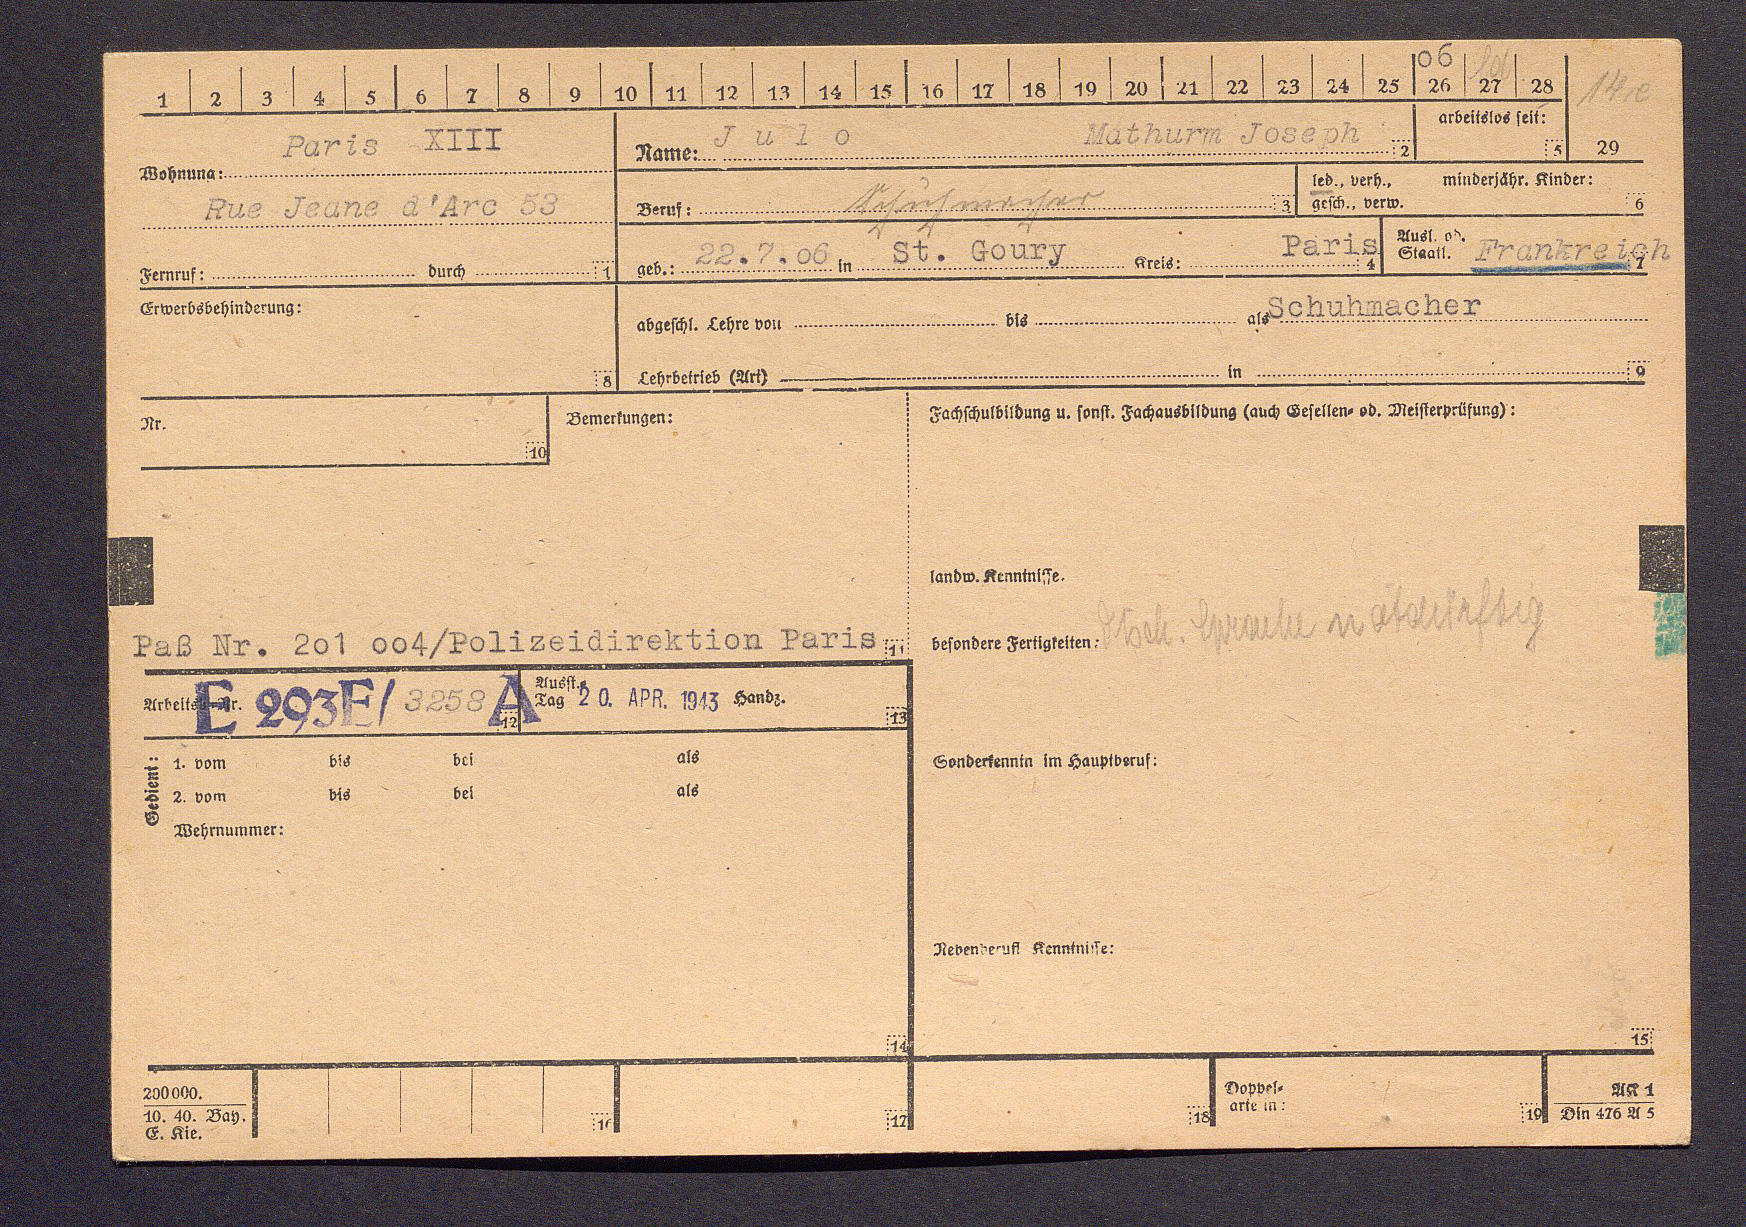 1 2 3 4 5 6 7 8 9 10 11 12 13 14 15 16 17 18 19 20 21 22 23 24 25 26 27 28
06
arbeitslos seit:
5
29
Paris XIII
Wohnung:
Rue Jeane d'Arc 53
Fernruf: durch 1
Name: Julo Mathurm Joseph 2
Beruf: Schuhmacher 3
led., verh., minderjähr. Kinder:
gesch., verw. 6
geb.: 22.7.o6 in St. Goury Kreis: Paris 4
Ausl. od.
Staatl. Frankreich 7
Erwerbsbehinderung:
8
abgeschl. Lehre von bis als Schuhmacher
Lehrbetrieb (Art) in 9
Nr.
10
Bemerkungen:
Fachschulbildung u. sonst. Fachausbildung (auch Gesellen- od. Meisterprüfung):
landw. Kenntnisse.
Paß Nr. 2o1 oo4/Polizeidirektion Paris 11
besondere Fertigkeiten: Dtsch. Sprache notdürftig
E 293E/ 3258 A 12
Ausst.-
Tag 20. APR. 1943 Handz. 13
Gedient:
1. vom bis bei als
2. vom bis bei als
Wehrnummer:
14
Sonderkenntn im Hauptberuf:
Nebenberufl Kenntnisse:
15
200000.
10. 40. Bay.
E. Kie.
16
17
18
Doppel-
arte in:
19
AK 1
Din 476 A 5